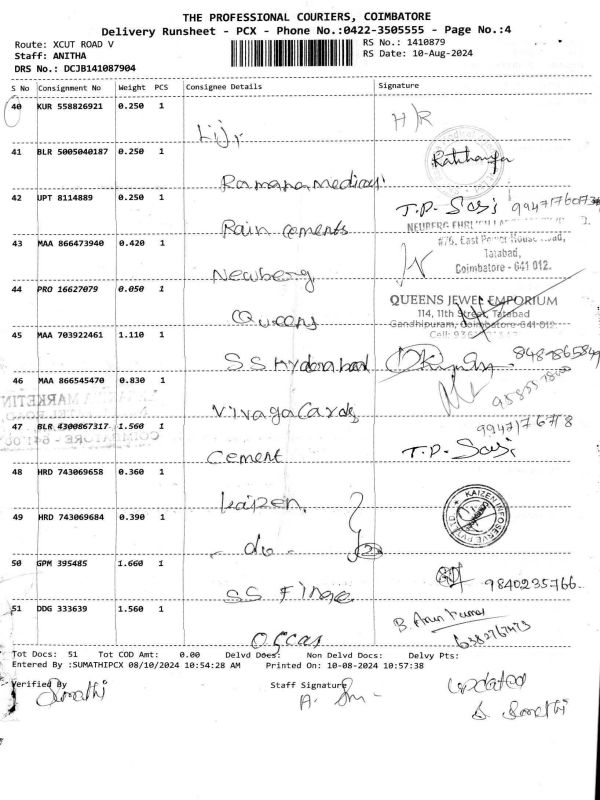 THE PROFESSIONAL COURIERS, COIMBATORE
Delivery Runsheet - PCX - Phone No.:0422-3505555 - Page No.:4
Route: XCUT ROAD V RS No.: 1410879
Staff: ANITHA RS Date: 10-Aug-2024
DRS No.: DCJB141087904
S No Consignment No Weight PCS Consignee Details Signature
40 KUR 558826921 0.250 1
H/R
41 BLR 5005040187 0.250 1
Ramana medical
42 UPT 8114889 0.250 1 T.P. Sasi
Rain cements
43 MAA 866473940 0.420 1 #76, East Power House Road,
Tatabad,
Coimbatore - 641 012.
Newberg
44 PRO 16627079 0.050 1 QUEENS JEWEL EMPORIUM
114, 11th Street, Tatabad
Gandhipuram, Coimbatore-641 012.
Queens
45 MAA 703922461 1.110 1
S.S Hyderabad
46 MAA 866545470 0.830 1
Vinaga Cards
47 BLR 4300867317 1.560 1 T.P. Sasi
Cement
48 HRD 743069658 0.360 1 KAIZEN INFOSERVE PVT LTD
Kaizen.
49 HRD 743069684 0.390 1
- do -
50 GPM 395485 1.660 1 9840235766
S.S
51 DDG 333639 1.560 1 B. Arun Kumar
Tot Docs: 51 Tot COD Amt: 0.00 Delvd Docs: Non Delvd Docs: Delvy Pts:
Entered By :SUMATHIPCX 08/10/2024 10:54:28 AM Printed On: 10-08-2024 10:57:38
Verified By Staff Signature Updated
Sumathi S. Sumathi